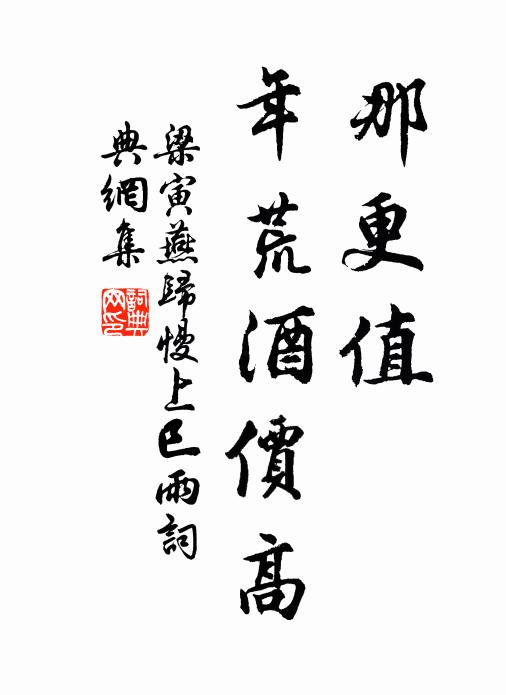 那更值
年荒酒價高
梁寅燕歸慢上巳雨詞
典網集
詞典
网印